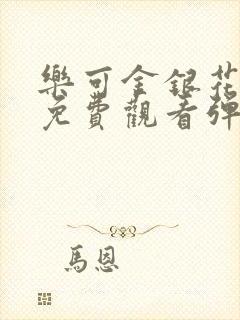 樂可金銀花
免費觀看彈
馬恩